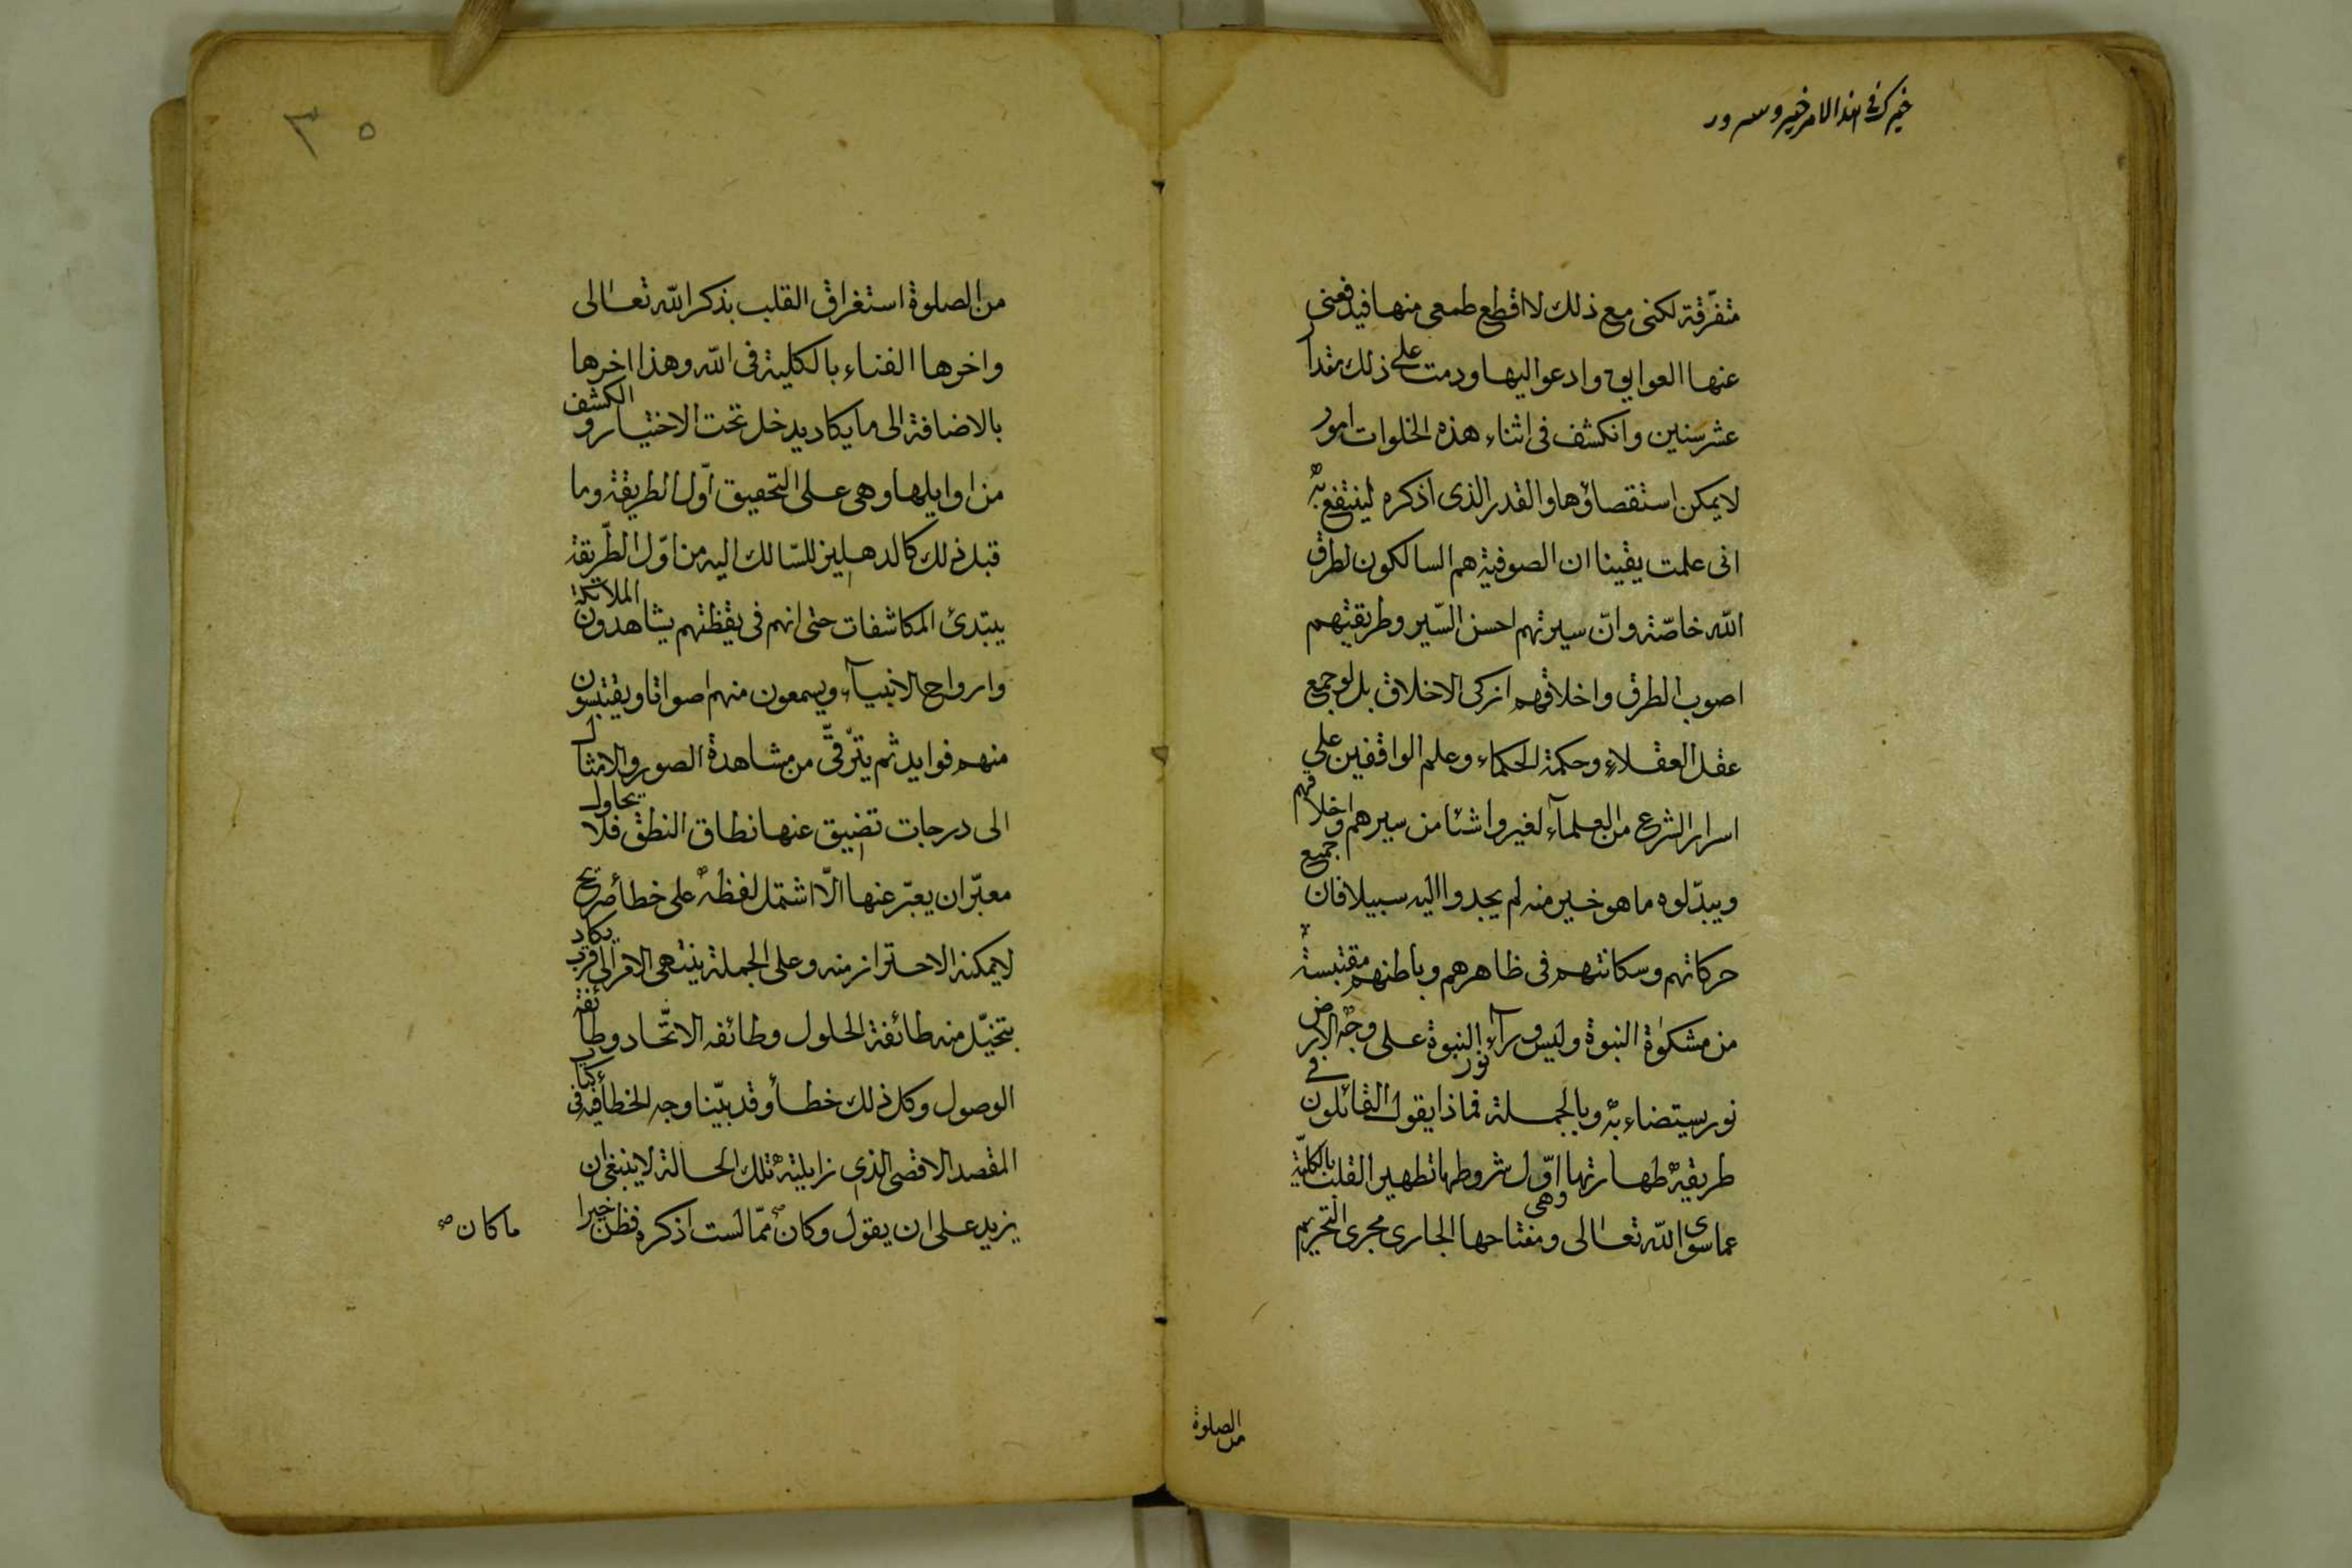 خيرك في هذا الامر خير وسرور
متفرّقة لكنى مع ذلك لا اقطع طمعى منها فيدفعنى
عنها العوايق وادعوا اليها ودمت على ذلك مقدار
عشر سنين وانكشف فى اثناء هذه الخلوات امور
لا يمكن استقصاؤها والقدر الذى اذكره لينتفع به
انى علمت يقينا ان الصوفية هم السالكون لطرق
الله خاصّة وانّ سيرتهم احسن السّير وطريقتهم
اصوب الطرق واخلاقهم ازكى الاخلاق بل لو جمع
عقل العقلاء وحكمة الحكماء وعلم الواقفين على
اسرار الشرع من العلمآء لغيروا شئا من سيرهم واخلاقهم
ويبدّلوه ما هو خير منه لم يجدوا اليه سبيلا فان جميع
حركاتهم وسكانتهم فى ظاهرهم وباطنهم مقتبسة
من مشكوٰة النبوة وليس ورآء نور النبوة على وجه الارض
نور يستضاء به وبالجملة فماذا يقول القائلون في
طريقة طهارتها وهى اوّل شروطها تطهير القلب بالكليّة
عما سوى الله تعالى ومفتاحها الجارى مجرى التحريم
من الصلوة
٣٥
من الصلوة استغراق القلب بذكر الله تعالى
واخرها الفناء بالكلية فى الله وهذا اخرها
بالاضافة الى ما يكاد يدخل تحت الاختيار والكشف
من اوايلها وهى على التحقيق اوّل الطريقة وما
قبل ذلك كالدهليز للسّالك اليه من اوّل الطّريقة
يبتدئ المكاشفات حتى انهم فى يقظتهم يشاهدون الملائكة
وارواح الانبيآء ويسمعون منهم اصواتا ويقتبسون
منهم فوايد ثم يترقّى من مشاهدة الصور والامثال
الى درجات تضيق عنها نطاق النطق فلا يحاول
معبّر ان يعبّر عنها الّا اشتمل لفظه على خطأ صريح
لا يمكنه الاحتراز منه وعلى الجملة ينتهى الامر الى قرب يكاد
يتخيّل منه طائفة الحلول وطائفه الاتّحاد وطائفة
الوصول وكل ذلك خطأ وقد بيّنا وجه الخطأ فيه فى كتاب
المقصد الاقصى الذى زايلته تلك الحالة لا ينبغى ان
يزيد على ان يقول وكان ممّا لست اذكره فظن خيرا
ما كان